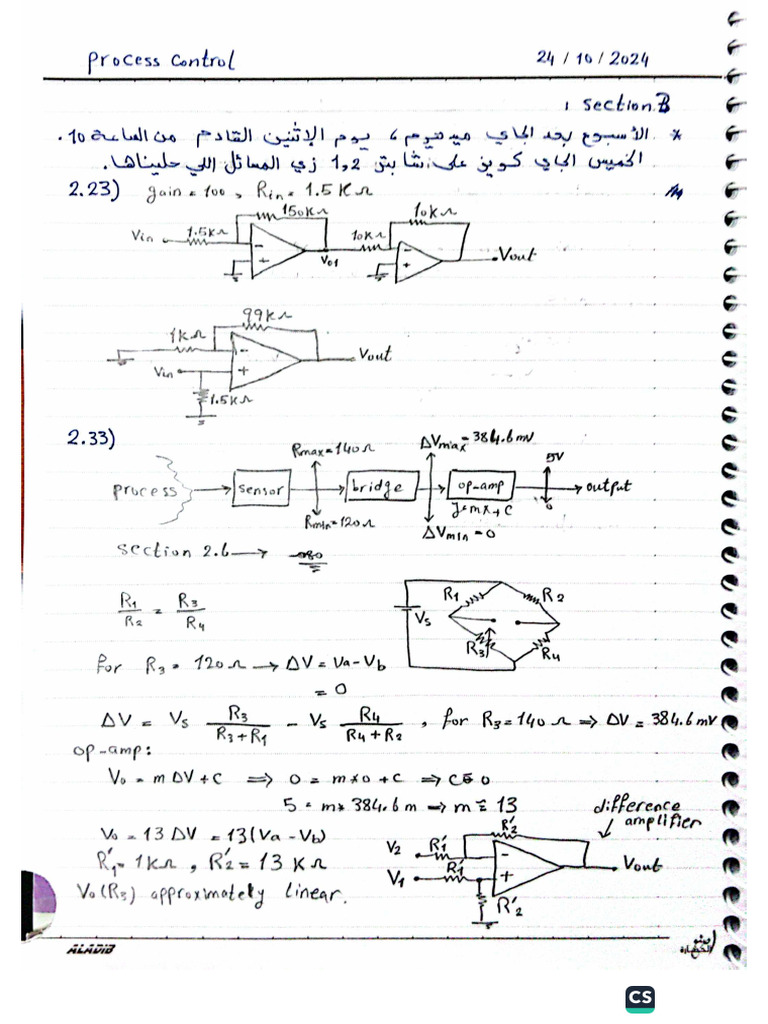 Process Control
24 / 10 / 2024
: section B
* الأسبوع بعد الجاي ميدتيرم ، يوم الإثنين القادم من الساعة 10.
الخميس الجاي كويز على شابتر 1,2 زي المسائل اللي حليناها.
2.23) gain = 100 , Rin = 1.5 KΩ
150kΩ
10kΩ
Vin
1.5kΩ
10kΩ
-
+
Vo1
-
+
Vout
99kΩ
1kΩ
-
+
Vout
Vin
1.5kΩ
2.33)
Rmax = 140Ω
ΔVmax = 384.6 mV
5V
process
sensor
bridge
op-amp
output
y = mx + c
0
Rmin = 120Ω
ΔVmin = 0
section 2.6 →
R1/R2 = R3/R4
R1
R2
Vs
R3
R4
for R3 = 120Ω → ΔV = Va - Vb
= 0
ΔV = Vs R3/(R3+R1) - Vs R4/(R4+R2) , for R3 = 140Ω ⇒ ΔV = 384.6 mV
op-amp:
Vo = m ΔV + C ⇒ 0 = m*0 + C ⇒ C = 0
5 = m* 384.6 m → m ≅ 13
difference amplifier
Vo = 13 ΔV = 13 (Va - Vb)
R'1 = 1kΩ , R'2 = 13 KΩ
Vo(R3) approximately linear.
R'2
V2
R'1
-
V1
R'1
+
Vout
R'2
ALADIB
CS